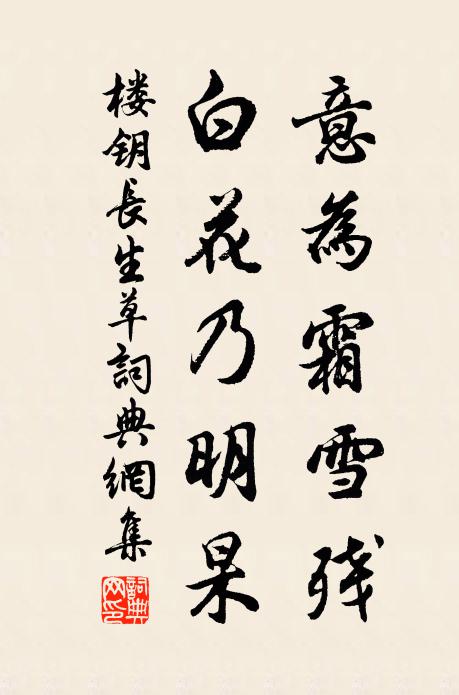 意為霜雪残
白花乃明杲
楼钥長生草詞典網集
詞典网印